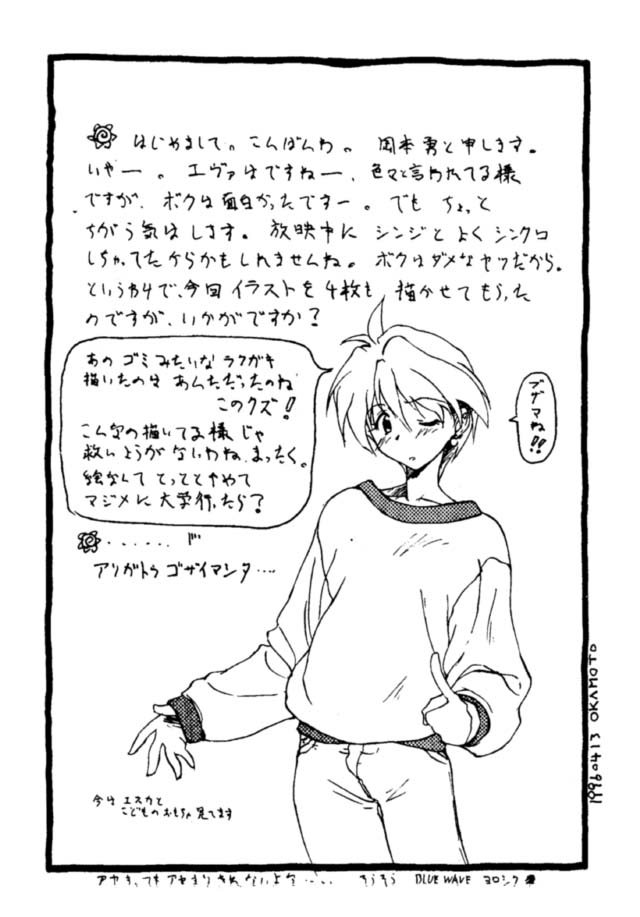 はじめまして。こんばんわ。 岡本勇と申します。
いやー。エヴァはですねー、色々と言われてる様
ですが、ボクは面白かったですー。でも ちょっと
ちがう気はします。放映中に シンジと よく シンクロ
しちゃてたからかもしれませんね。ボクはダメなヤツだから。
というわけで、今回 イラストを 4枚も 描かせて もらった
のですが、いかがですか?
あの ゴミ みたいな ラクガキ
描いたのは あんただったのね
このクズ!
こんなの描いてる様じゃ
救いようが ないわね、まったく。
絵なんて とっとと やめて
マジメに 大学行ったら?
ブザマね!!
・・・・・・
アリガトゥ ゴザイマシタ・・・・
今は エスカと
こどものおもちゃ 見てます
そうそう BLUE WAVE ヨロシク
19960413 OKAMOTO